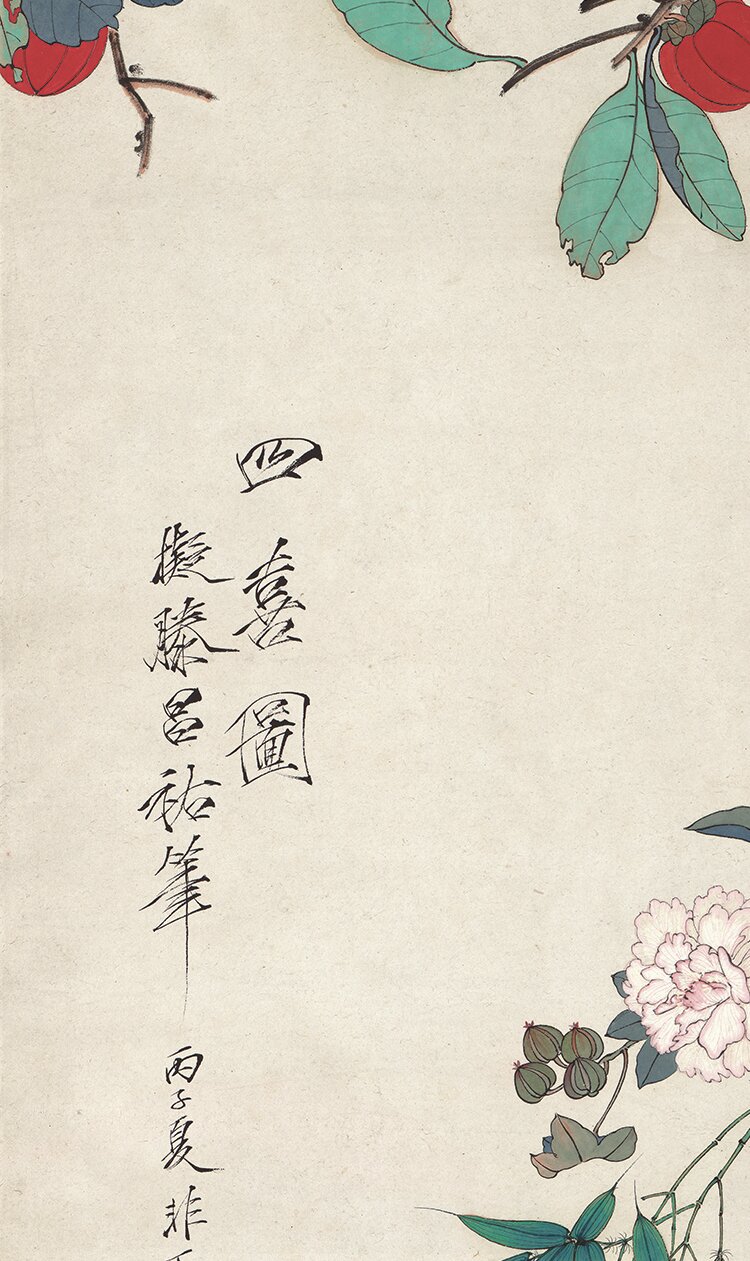 四喜圖
擬滕昌祐筆
丙子夏非